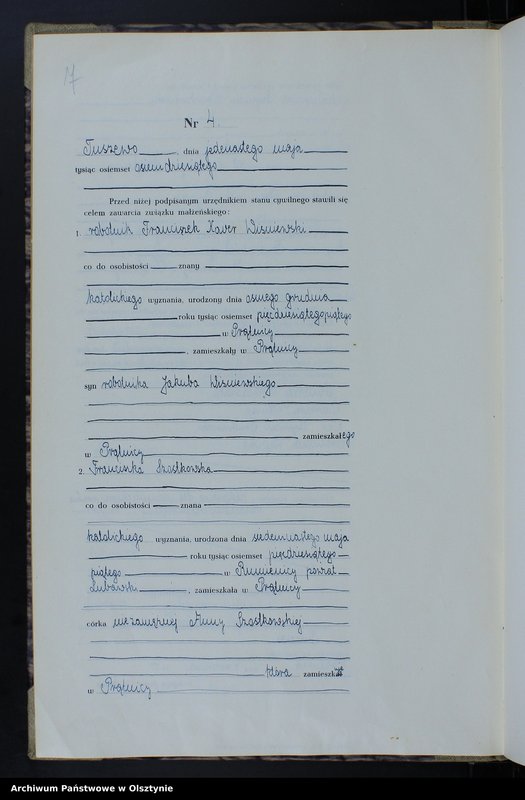 17
Nr 4.
Tuszewo, dnia jedenastego maja
tysiąc osiemset osiemdziesiątego
Przed niżej podpisanym urzędnikiem stanu cywilnego stawili się
celem zawarcia związku małżeńskiego:
1. robotnik Franciszek Xaver Wiśniewski
co do osobistości znany
katolickiego wyznania, urodzony dnia ósmego grudnia
roku tysiąc osiemset pięćdziesiątego piątego
w Prątnicy
, zamieszkały w Prątnicy
syn robotnika Jakuba Wiśniewskiego
zamieszkałego
w Prątnicy
2. Franciszka Szostkowska
co do osobistości znana
katolickiego wyznania, urodzona dnia siedemnastego maja
roku tysiąc osiemset pięćdziesiątego
piątego w Rumienicy powiat
Lubawski, zamieszkała w Prątnicy
córka niezamężnej Anny Szostkowskiej
która zamieszk
w Prątnicy
Archiwum Państwowe w Olsztynie